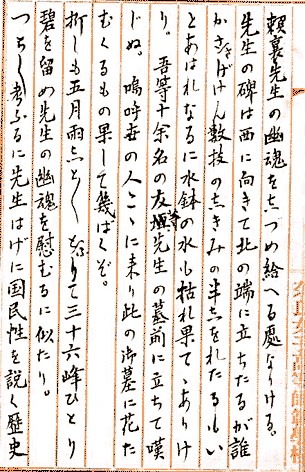 頼襄先生の幽魂を志づめ給へる處なりける。
先生の碑は西に向きて北の端に立ちたるが誰
かさゝげけん数技の志きみの半志をれたるもい
とあはれなるに水鉢の水も枯れ果てゝありけ
り。吾等十余名の友等先生の墓前に立ちて嘆
じぬ。嗚呼世の人こゝに来り此の御墓に花た
むくるもの果して幾ばくぞ。
折しも五月雨志と〳〵ふりて三十六峰ひとり
碧を留め先生の幽魂を慰むるに似たり。
つら〳〵考ふるに先生はげに国民性を説く歴史